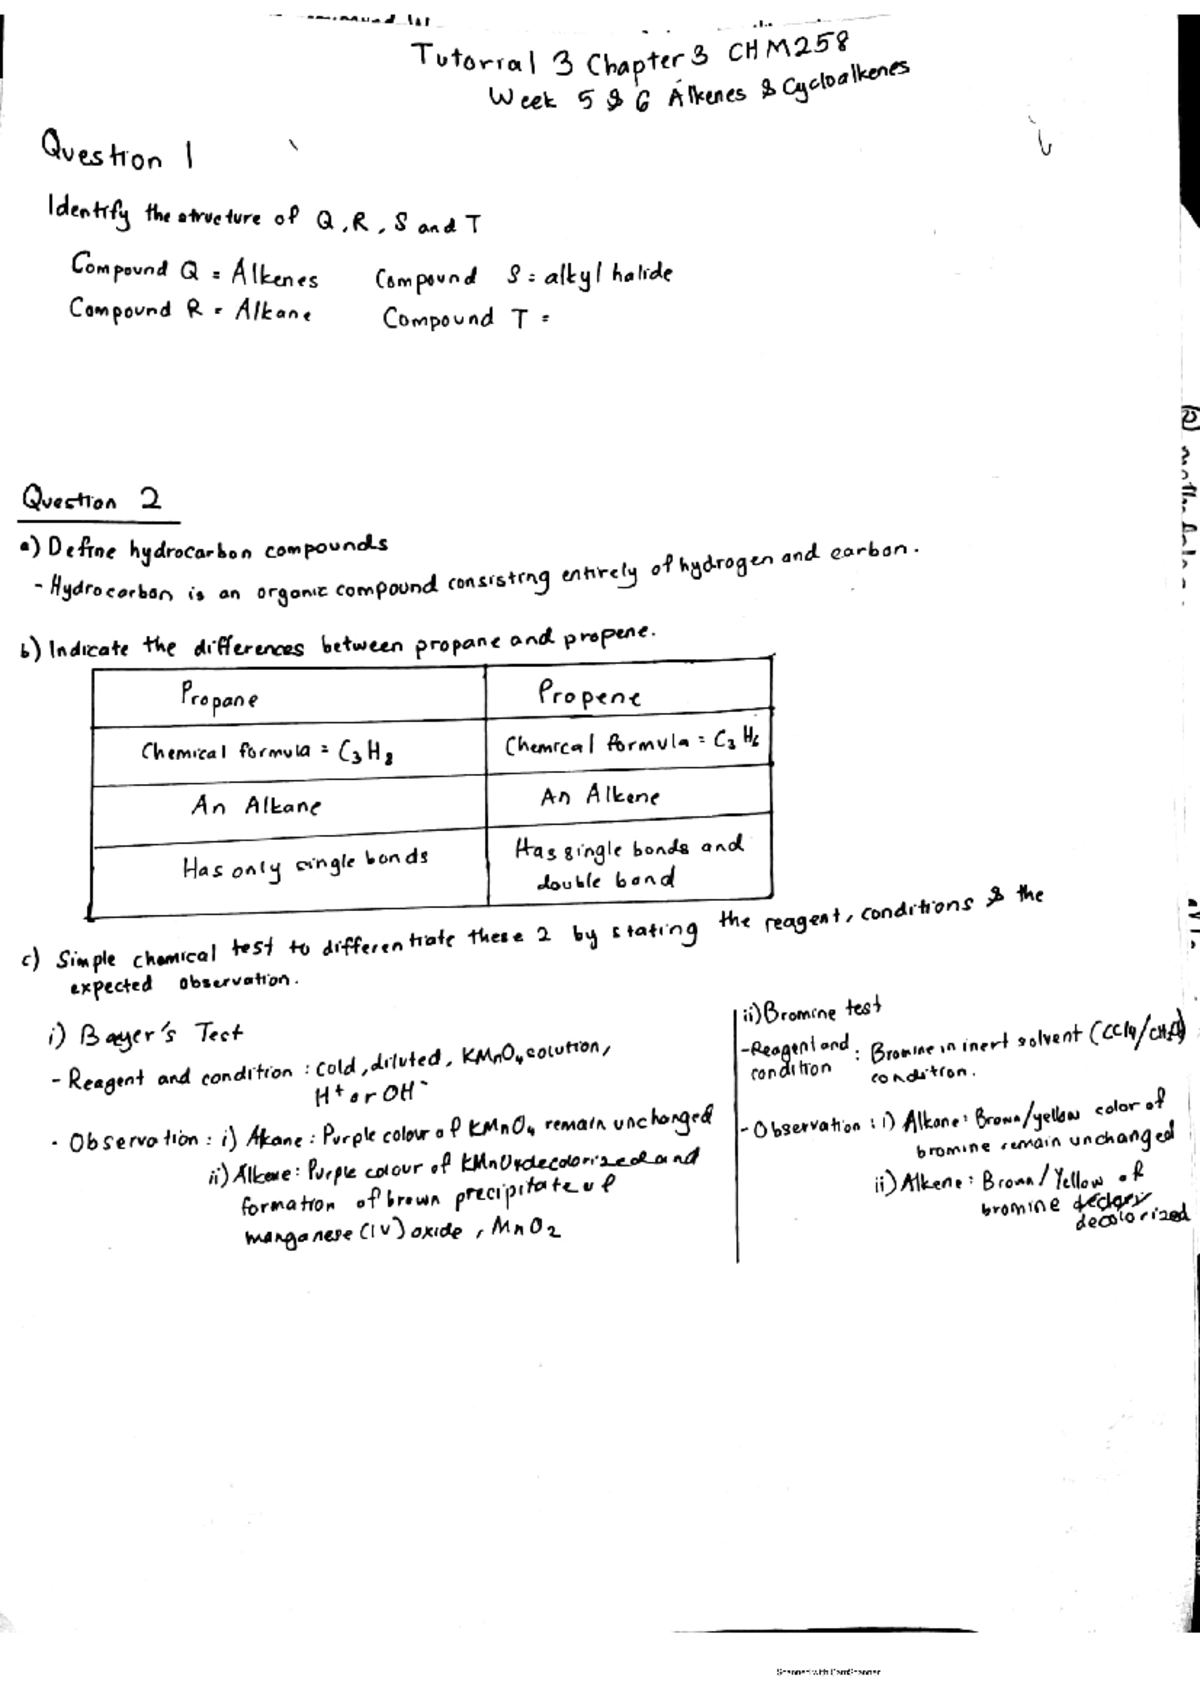 Tutorial 3 Chapter 3 CHM258
Week 5 & 6 Alkenes & Cycloalkenes
Question 1
Identify the structure of Q, R, S and T
Compound Q = Alkenes Compound S = alkyl halide
Compound R = Alkane Compound T =
Question 2
a) Define hydrocarbon compounds
- Hydrocarbon is an organic compound consisting entirely of hydrogen and carbon.
b) Indicate the differences between propane and propene.
Propane Propene
Chemical formula = C3H8 Chemical formula = C3H6
An Alkane An Alkene
Has only single bonds Has single bonds and
double bond
c) Simple chemical test to differentiate these 2 by stating the reagent, conditions & the
expected observation.
i) Bayer's Test
- Reagent and condition : cold, diluted, KMnO4 solution,
H+ or OH-
- Observation : i) Alkane : Purple colour of KMnO4 remain unchanged
ii) Alkene : Purple colour of KMnO4 decolorized and
formation of brown precipitate of
manganese (IV) oxide, MnO2
ii) Bromine test
- Reagent and : Bromine in inert solvent (CCl4/
condition condition.
- Observation : i) Alkane : Brown/yellow color of
bromine remain unchanged
ii) Alkene : Brown/Yellow of
bromine
decolorized
Scanned with CamScanner